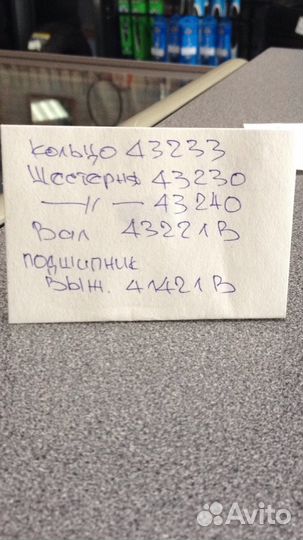 Кольцо 43233
Шестерня 43230
—//— 43240
Вал 43221В
подшипник
Выж. 41421В
Avito